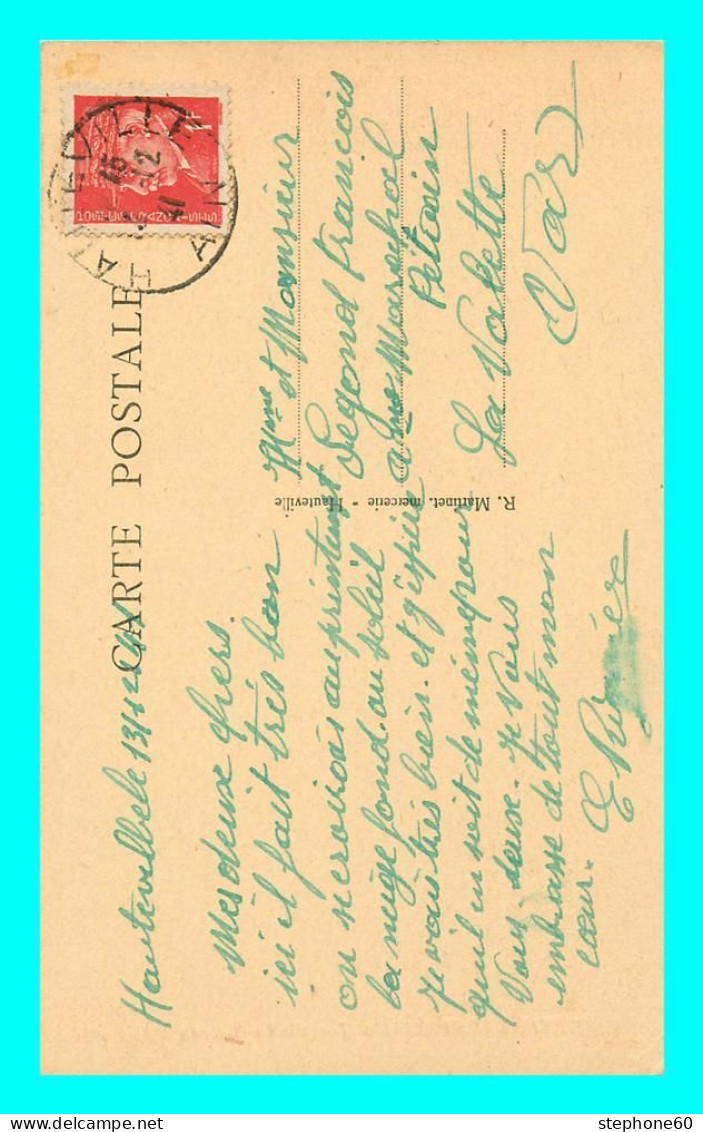 CARTE POSTALE
Hauteville le 13/12 41
Mes deux chers.
ici il fait très bon
on ce croirais au printemps
la neige fond au soleil
je vais très bien. et j'espère
qu'il en soit de meme pour
Vous deux. Je Vous
embrasse de tout mon
cœur.
R. Martinet, mercerie - Hauteville
Mme et Monsieur
Segond Francois
Ave Marechal
Petain
La Valette
Var
HAUTEVILLE
AIN
15
12
41
stephone60